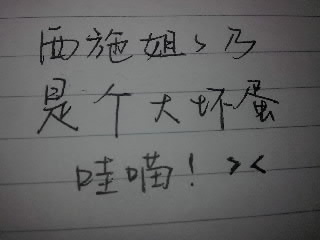 西施姐〻乃
是个大坏蛋
哇喵！><